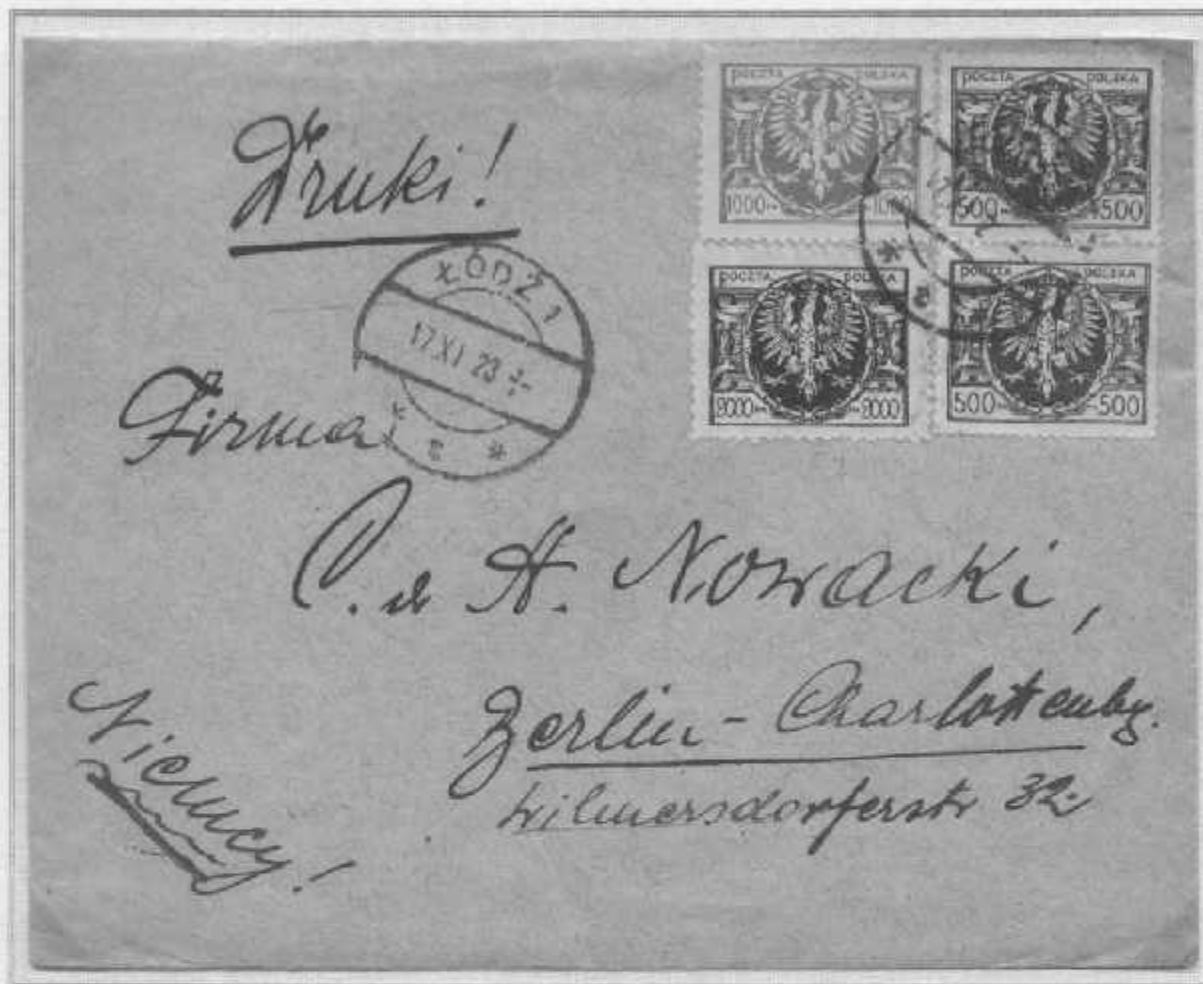 Druki!
POCZTA POLSKA
1000 1000
POCZTA POLSKA
500 500
POCZTA POLSKA
2000 2000
POCZTA POLSKA
500 500
ŁÓDŹ 1
17 XI 23
Firma
C. & A. Nowacki,
Berlin-Charlottenbg.
Wilmersdorferstr 32
Niemcy!